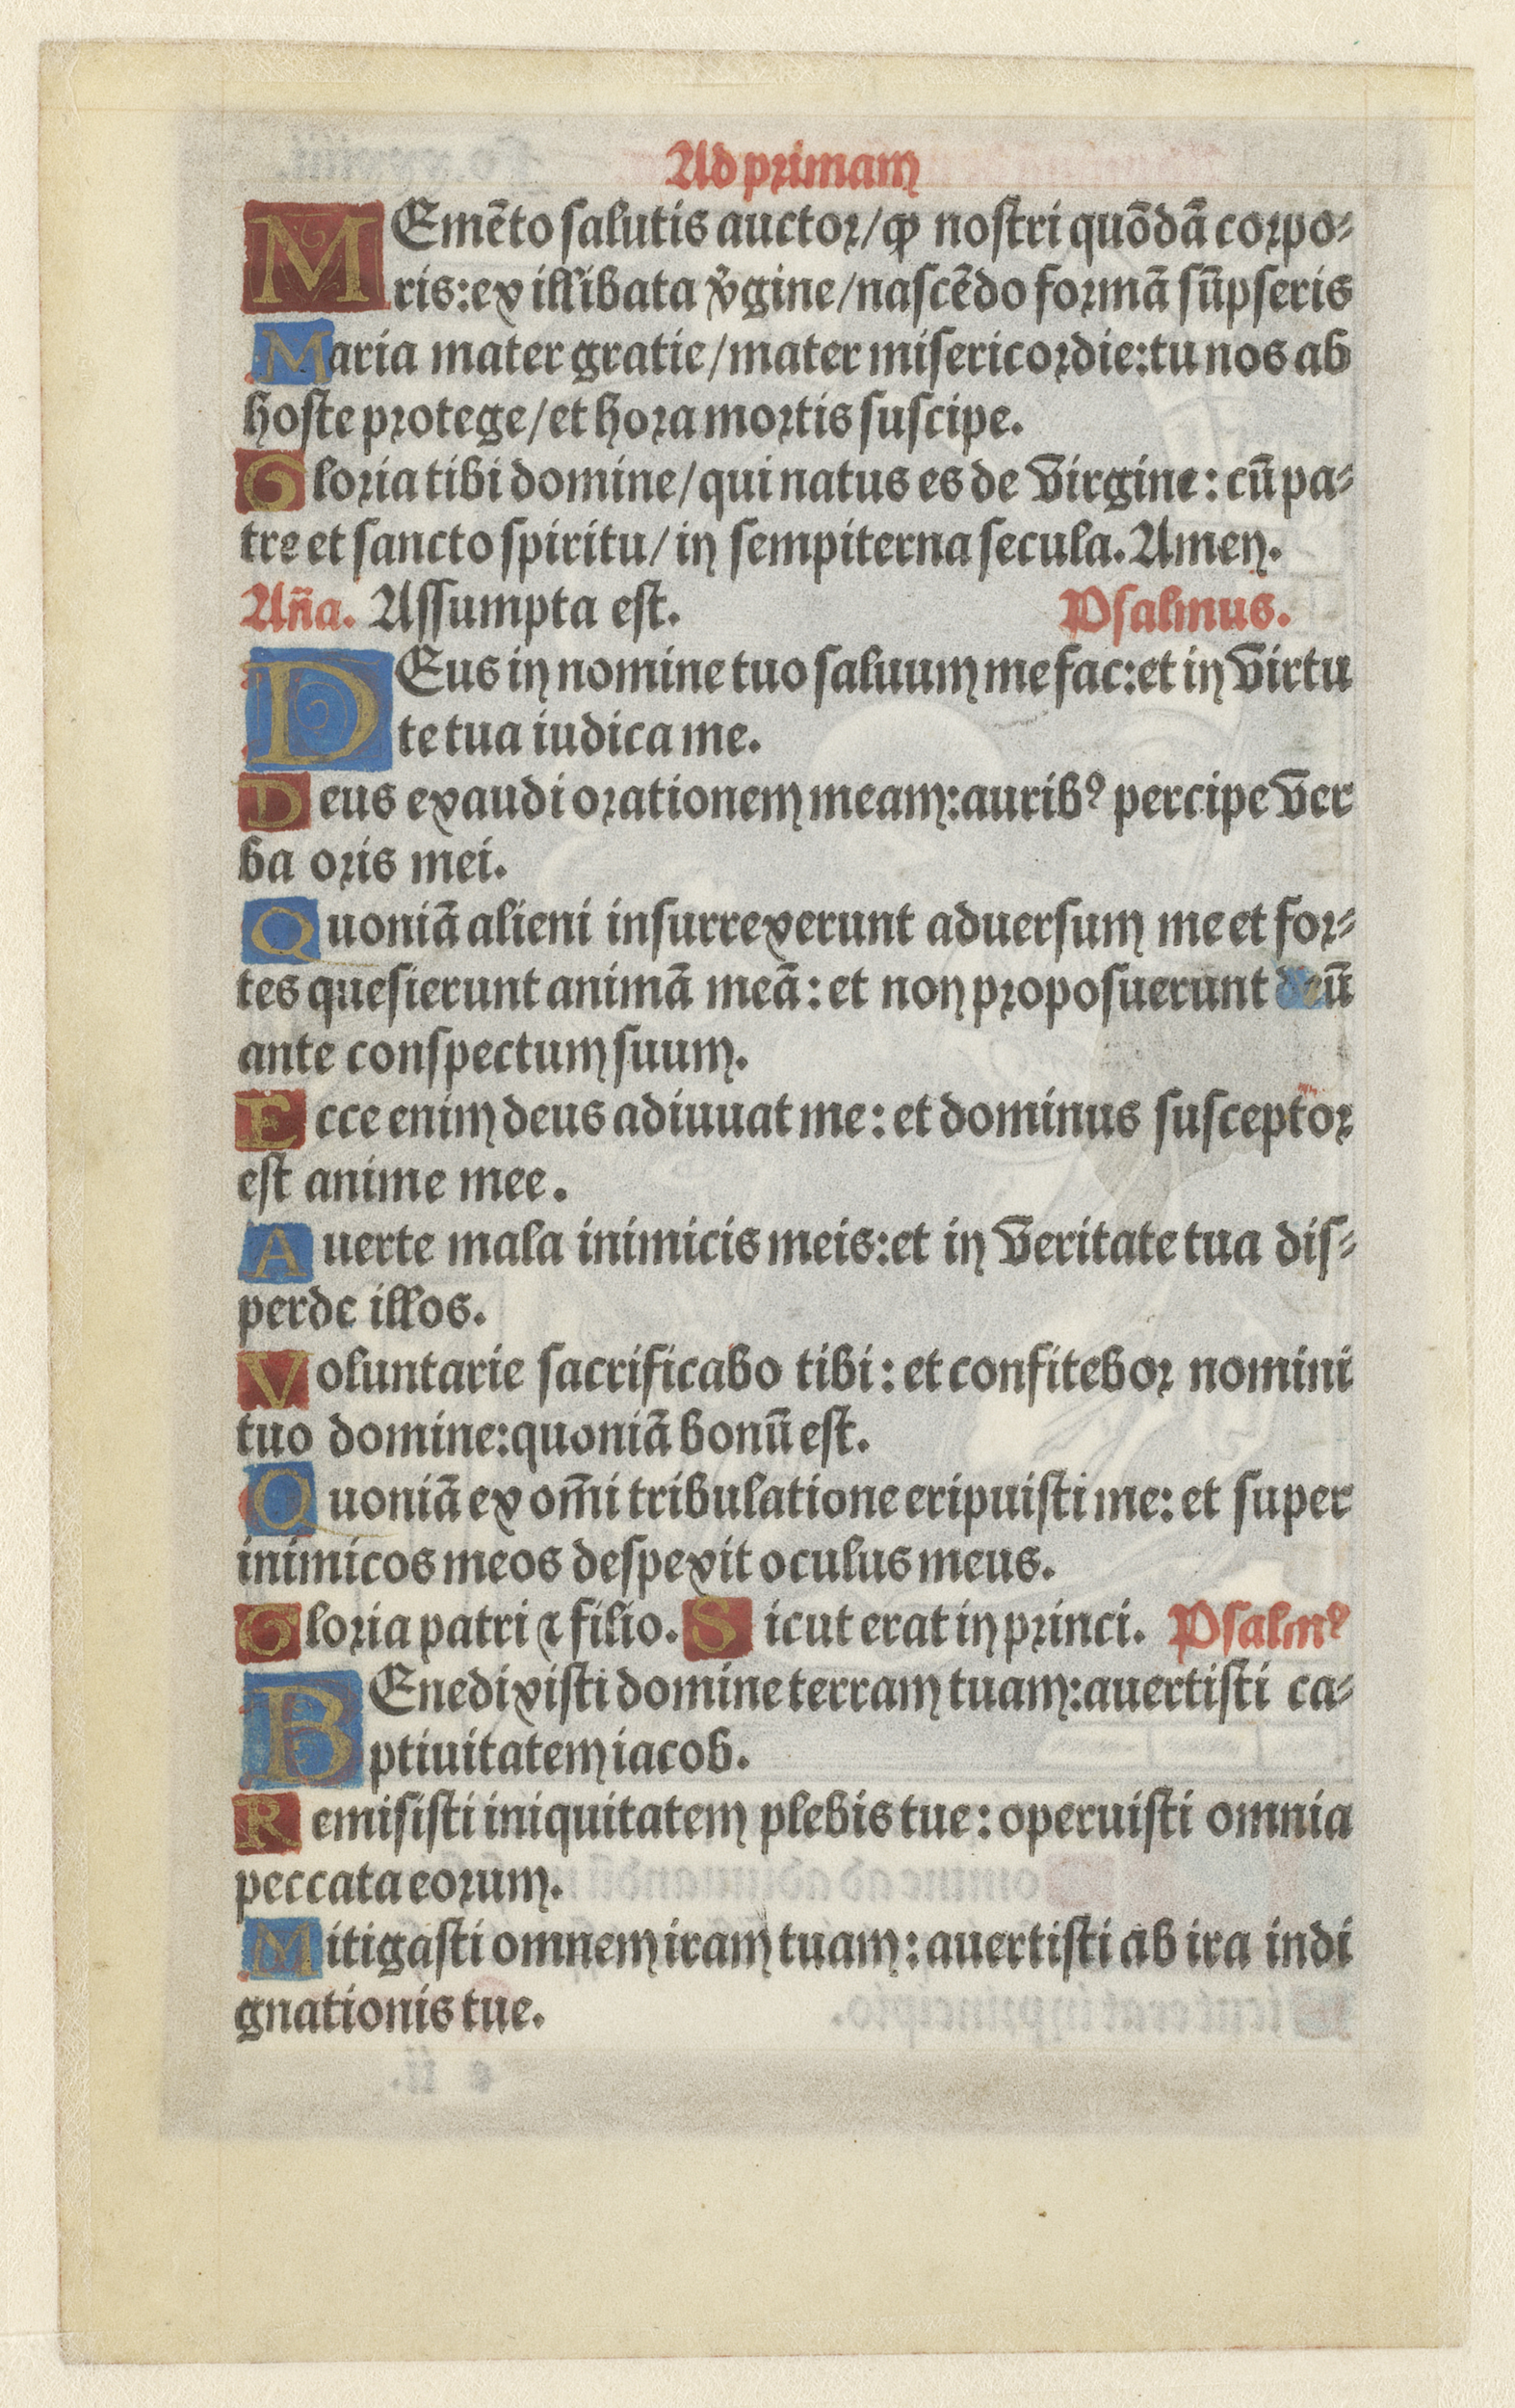 Ad primam
MEmēto salutis auctor/ꝙ nostri quōdā corpo⸗
ris:ex illibata v̇gine/nascēdo formā sūpseris
Maria mater gratie/mater misericordie:tu nos ab
hoste protege/et hora mortis suscipe.
Gloria tibi domine/qui natus es de virgine: cū pa⸗
tre et sancto spiritu/ in sempiterna secula. Amen.
Aña. Assumpta est. Psalmus.
DEus in nomine tuo saluum me fac:et in virtu
te tua iudica me.
Deus exaudi orationem meam:auribꝰ percipe ver
ba oris mei.
Quoniā alieni insurrexerunt aduersum me et for⸗
tes quesierunt animā meā: et non proposuerunt deū
ante conspectum suum.
Ecce enim deus adiuuat me: et dominus susceptor
est anime mee.
Auerte mala inimicis meis:et in veritate tua dis⸗
perde illos.
Voluntarie sacrificabo tibi: et confitebor nomini
tuo domine:quoniā bonū est.
Quoniā ex om̄i tribulatione eripuisti me: et super
inimicos meos despexit oculus meus.
Gloria patri ⁊ filio. Sicut erat in princi. Psalmꝰ
BEnedixisti domine terram tuam:auertisti ca⸗
ptiuitatem iacob.
Remisisti iniquitatem plebis tue: operuisti omnia
peccata eorum.
Mitigasti omnem iram tuam: auertisti ab ira indi
gnationis tue.